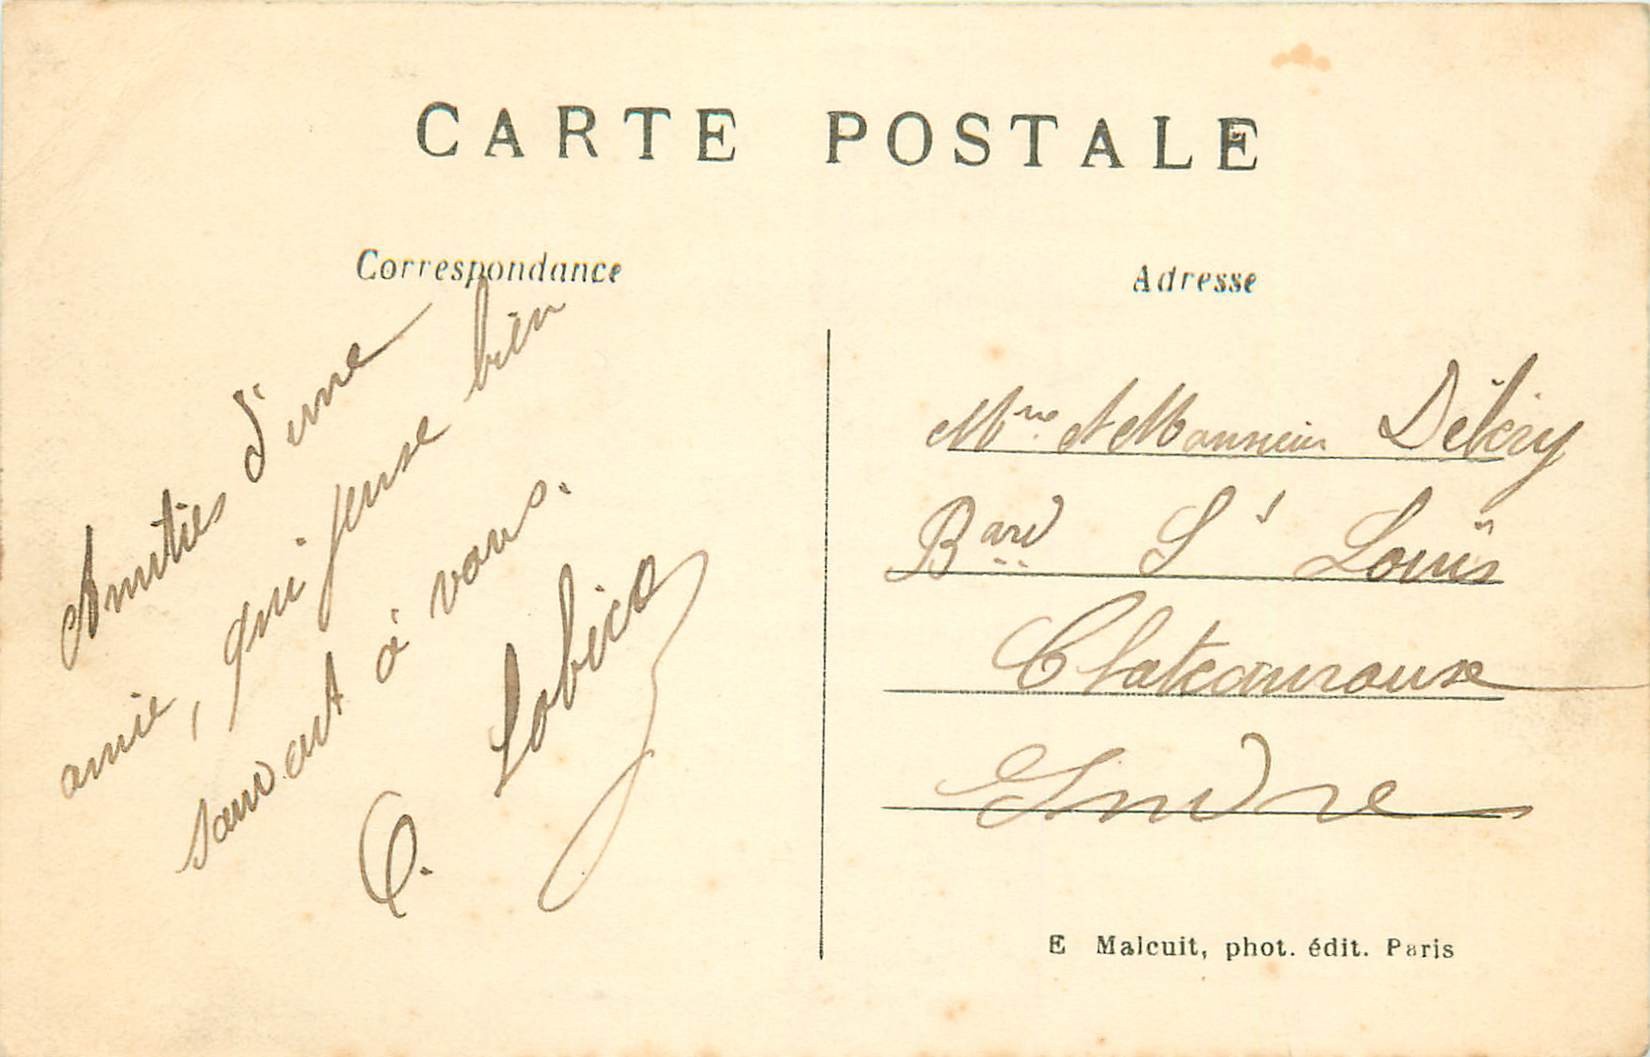 CARTE POSTALE
Correspondance
Amitiés d'une
amie, qui pense bien
souvent à vous.
Adresse
Mme et Monsieur
Bard St Louis
Chateauroux
Indre
E Malcuit, phot. édit. Paris